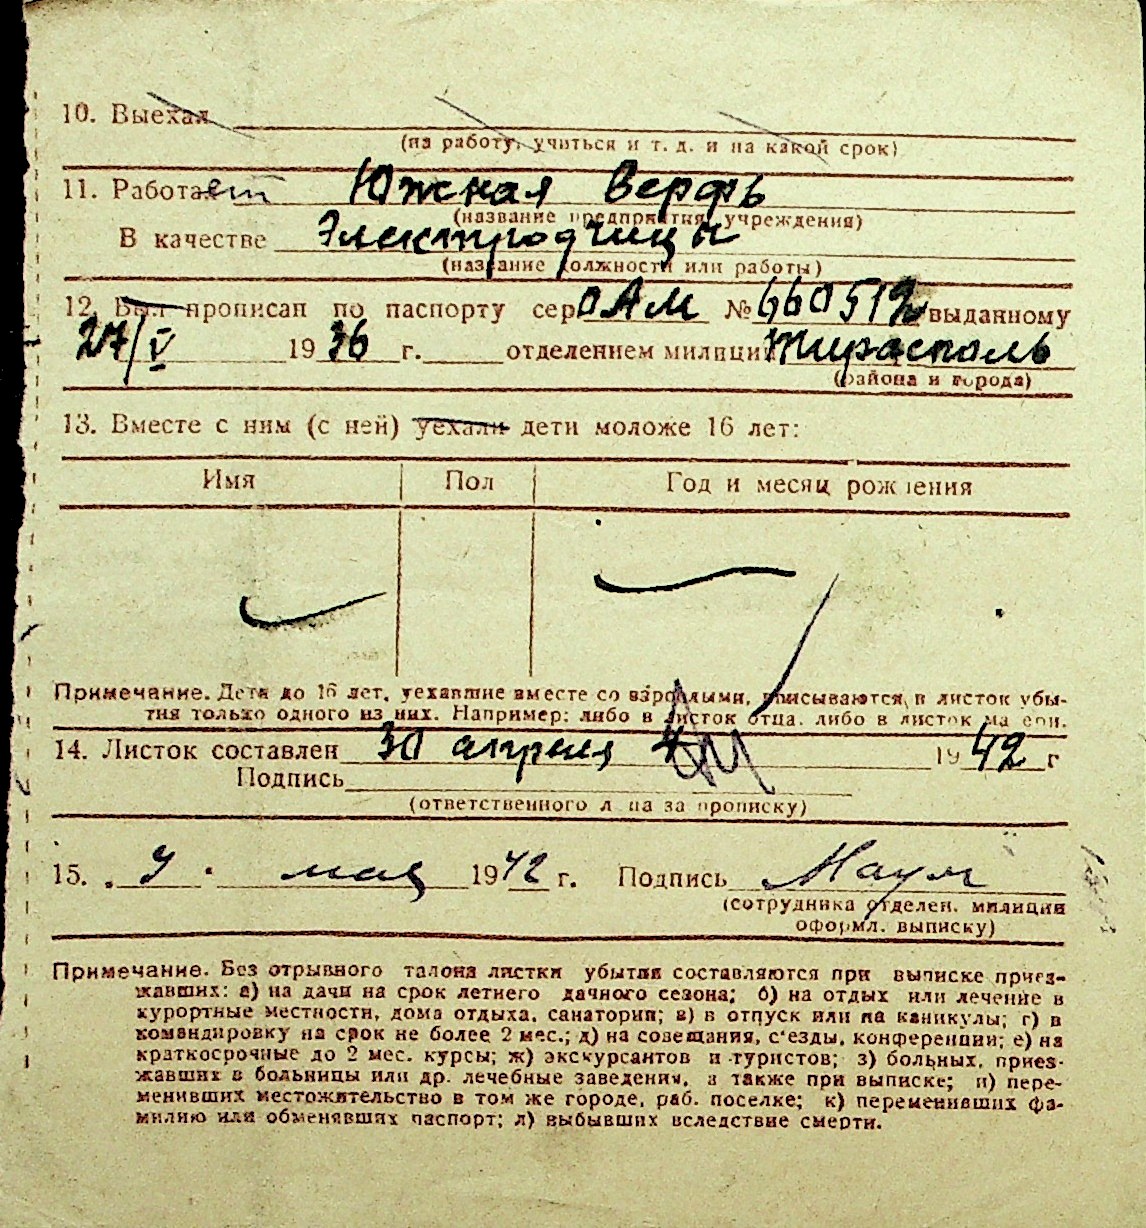 10. Выехал
(на работу, учиться и т. д. и на какой срок)
11. Работает Южная верфь
(название предприятия, учреждения)
В качестве
(название должности или работы)
12. Был прописан по паспорту сер. ОАМ № 660512 выданному
27/V 1936 г. отделением милиции Тирасполь
(района и города)
13. Вместе с ним (с ней) уехали дети моложе 16 лет:
Имя Пол Год и месяц рождения
Примечание. Дети до 16 лет, уехавшие вместе со взрослыми, вписываются в листок убы-
тия только одного из них. Например: либо в листок отца, либо в листок матери.
14. Листок составлен 30 апреля 1942 г
Подпись
(ответственного лица за прописку)
15. мая 1942 г. Подпись
(сотрудника отделен. милиции
оформл. выписку)
Примечание. Без отрывного талона листки убытия составляются при выписке приез-
жавших: а) на дачи на срок летнего дачного сезона; б) на отдых или лечение в
курортные местности, дома отдыха, санатории; в) в отпуск или на каникулы; г) в
командировку на срок не более 2 мес.; д) на совещания, с'езды, конференции; е) на
краткосрочные до 2 мес. курсы; ж) экскурсантов и туристов; з) больных, приез-
жавших в больницы или др. лечебные заведения, а также при выписке; и) пере-
менивших местожительство в том же городе, раб. поселке; к) переменивших фа-
милию или обменявших паспорт; л) выбывших вследствие смерти.